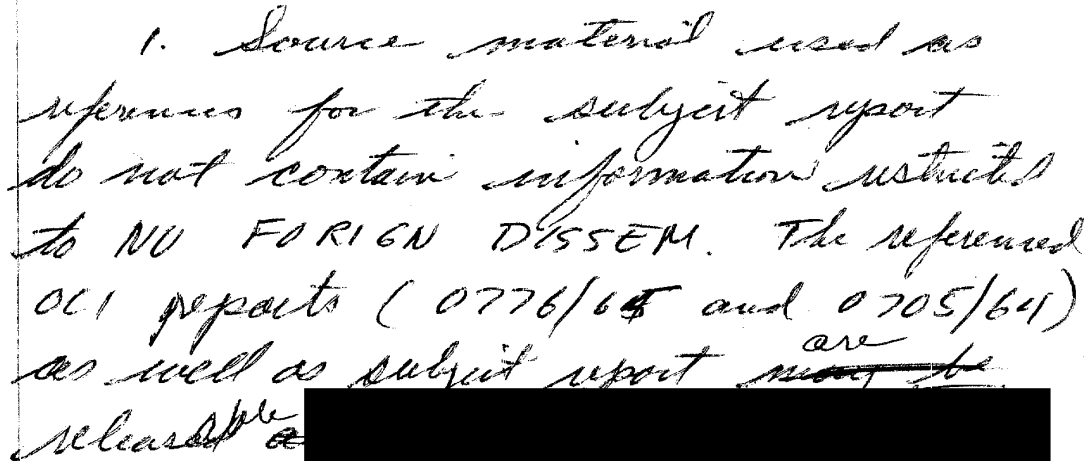 1. Source material used as
references for the subject report
do not contain information restricted
to NO FORIGN DISSEM. The referenced
OCI reports (0776/65 and 0705/64)
as well as subject report may be are
releasable